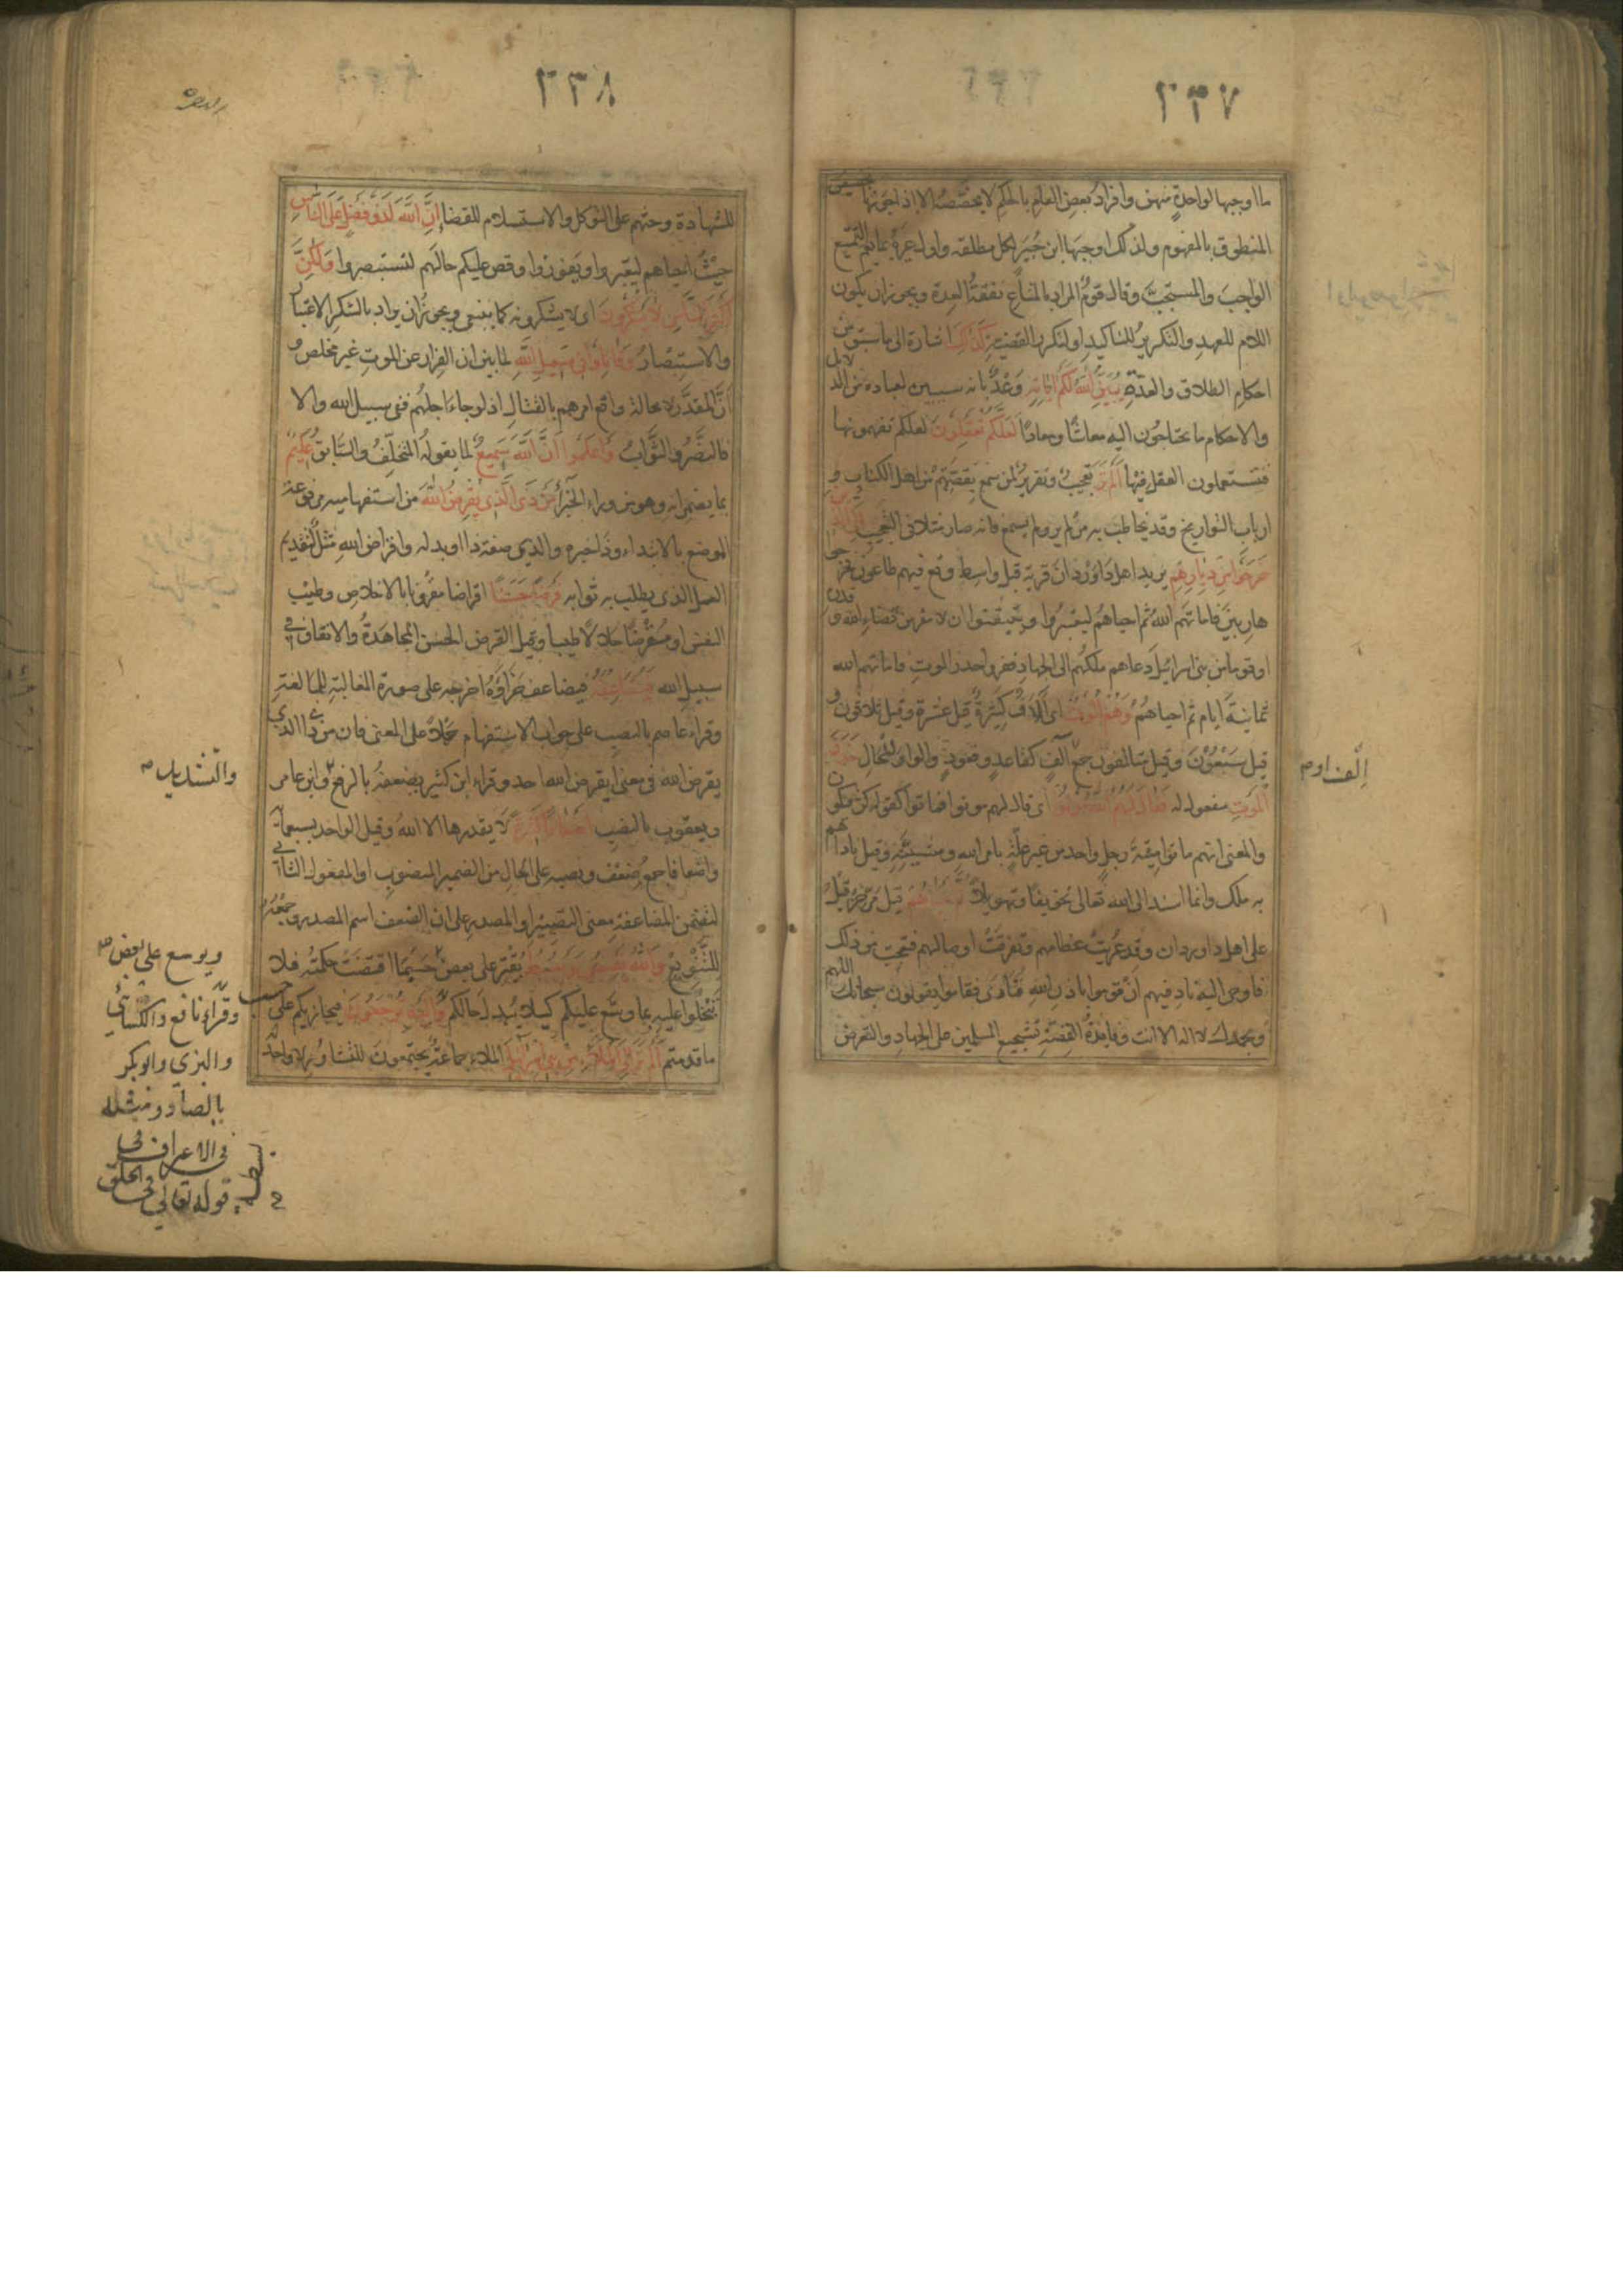 ٢٣٧
ما اوجبها لواحدة منهن وافراد بعض العام بالحكم لا يخصصه الا اذا جوزنا تخصيص
المنطوق بالمفهوم ولذلك اوجبها ابن جبير لكل مطلقه واول غيره بما يعم التمتيع
الواجب والمستحب وقال قوم المراد بالمتاع نفقة العدة ويجوز ان يكون
اللام للعهد والتكرير للتاكيد او لتكرر القضية كذلك اشارة الى ما سبق من
احكام الطلاق والعدة يبين الله لكم آياته وعد بانه سيبين لعباده من الدلايل
والاحكام ما يحتاجون اليه معاشا ومعادا لعلكم تعقلون لعلكم تفهمونها
فتستعملون العقل فيها الم تر تعجيب وتقرير لمن سمع بقصتهم من اهل الكتاب و
ارباب التواريخ وقد يخاطب به من لم ير ولم يسمع فانه صار مثلا في التعجيب الى الذين
خرجوا من ديارهم يريد اهل داوردان قرية قبل واسط وقع فيهم طاعون فخرجوا
هاربين فاماتهم الله ثم احياهم ليعتبروا ويتيقنوا ان لا مفر من قضاء الله وقدره
او قوما من بنى اسرائيل دعاهم ملكهم الى الجهاد ففروا حذر الموت فاماتهم الله
ثمانية ايام ثم احياهم وهم الوف اى آلاف كثيرة قيل عشرة وقيل ثلاثون و
قيل سبعون وقيل متالفون جمع آلف كقاعد وقعود والواو للحال حذر
الموت مفعول له فقال لهم الله موتوا اى قال لهم موتوا فماتوا كقوله كن فيكون
والمعنى انهم ماتوا ميتة رجل واحد من غير علة بامر الله ومشيته وقيل ناداهم
به ملك وانما اسند الى الله تعالى تخويفا وتهويلا ثم احياهم قيل مر حزقيل
على اهل داوردان وقد عريت عظامهم وتفرقت اوصالهم فتعجب من ذلك
فاوحى اليه ناد فيهم ان قوموا باذن الله فنادى فقاموا يقولون سبحانك اللهم
وبحمدك لا اله الا انت وفايدة القصة تشجيع المسلمين على الجهاد والتعرض
الف او م
٢٣٨
للشهادة وحثهم على التوكل والاستسلام للقضا ان الله لذو فضل على الناس
حيث احياهم ليعتبروا ويفوزوا وقص عليكم حالهم لتستبصروا ولكن
اكثر الناس لا يشكرون اى لا يشكرونه كما ينبغى ويجوز ان يراد بالشكر الاعتبار
والاستبصار وقاتلوا فى سبيل الله لما بين ان الفرار عن الموت غير مخلص و
ان المقدر لا محالة واقع امرهم بالقتال اذ لو جاء اجلهم ففى سبيل الله والا
فالنصر والثواب واعلموا ان الله سميع لما يقوله المتخلف والسابق عليم
بما يضمرانه وهو من وراء الجزا من ذا الذى يقرض الله من استفهامية مرفوعة
الموضع بالابتداء وذا خبره والذى صفة ذا او بدله واقراض الله مثل لتقديم
العمل الذى يطلب به ثوابه قرضا حسنا اقراضا مقرونا بالاخلاص وطيب
النفس او مقرضا حلالا طيبا وقيل القرض الحسن المجاهدة والانفاق فى
سبيل الله فيضاعفه فيضاعف جزاءه اخرجه على صورة المغالبة للمبالغة
وقراء عاصم بالنصب على جواب الاستفهام حملا على المعنى فان من ذا الذى
يقرض الله فى معنى ايقرض الله احد وقراء ابن كثير يضعفه بالرفع وابن عامر
ويعقوب بالنصب اضعافا كثيرة لا يقدرها الا الله وقيل الواحد بسبعماية
واضعافا جمع ضعف ونصبه على الحال من الضمير المنصوب او المفعول الثانى
لتضمن المضاعفة معنى التصيير او المصدر على ان الضعف اسم المصدر وجمعه
للتنويع والله يقبض ويبسط يقتر على بعض حسبما اقتضت حكمته فلا
تبخلوا عليه بما وسع عليكم كيلا يبدل حالكم واليه ترجعون فيجازيكم على حسب
ما قدمتم الم تر الى الملاء من بنى اسرائيل الملاء جماعة يجتمعون للتشاور لا واحد له
والتشديد
ويوسع على بعض
وقراء نافع والكسائي
والبزي وابو بكر
بالصاد ومثله
فى الاعراف فى
قوله تعالى فى الخلق
بسطة